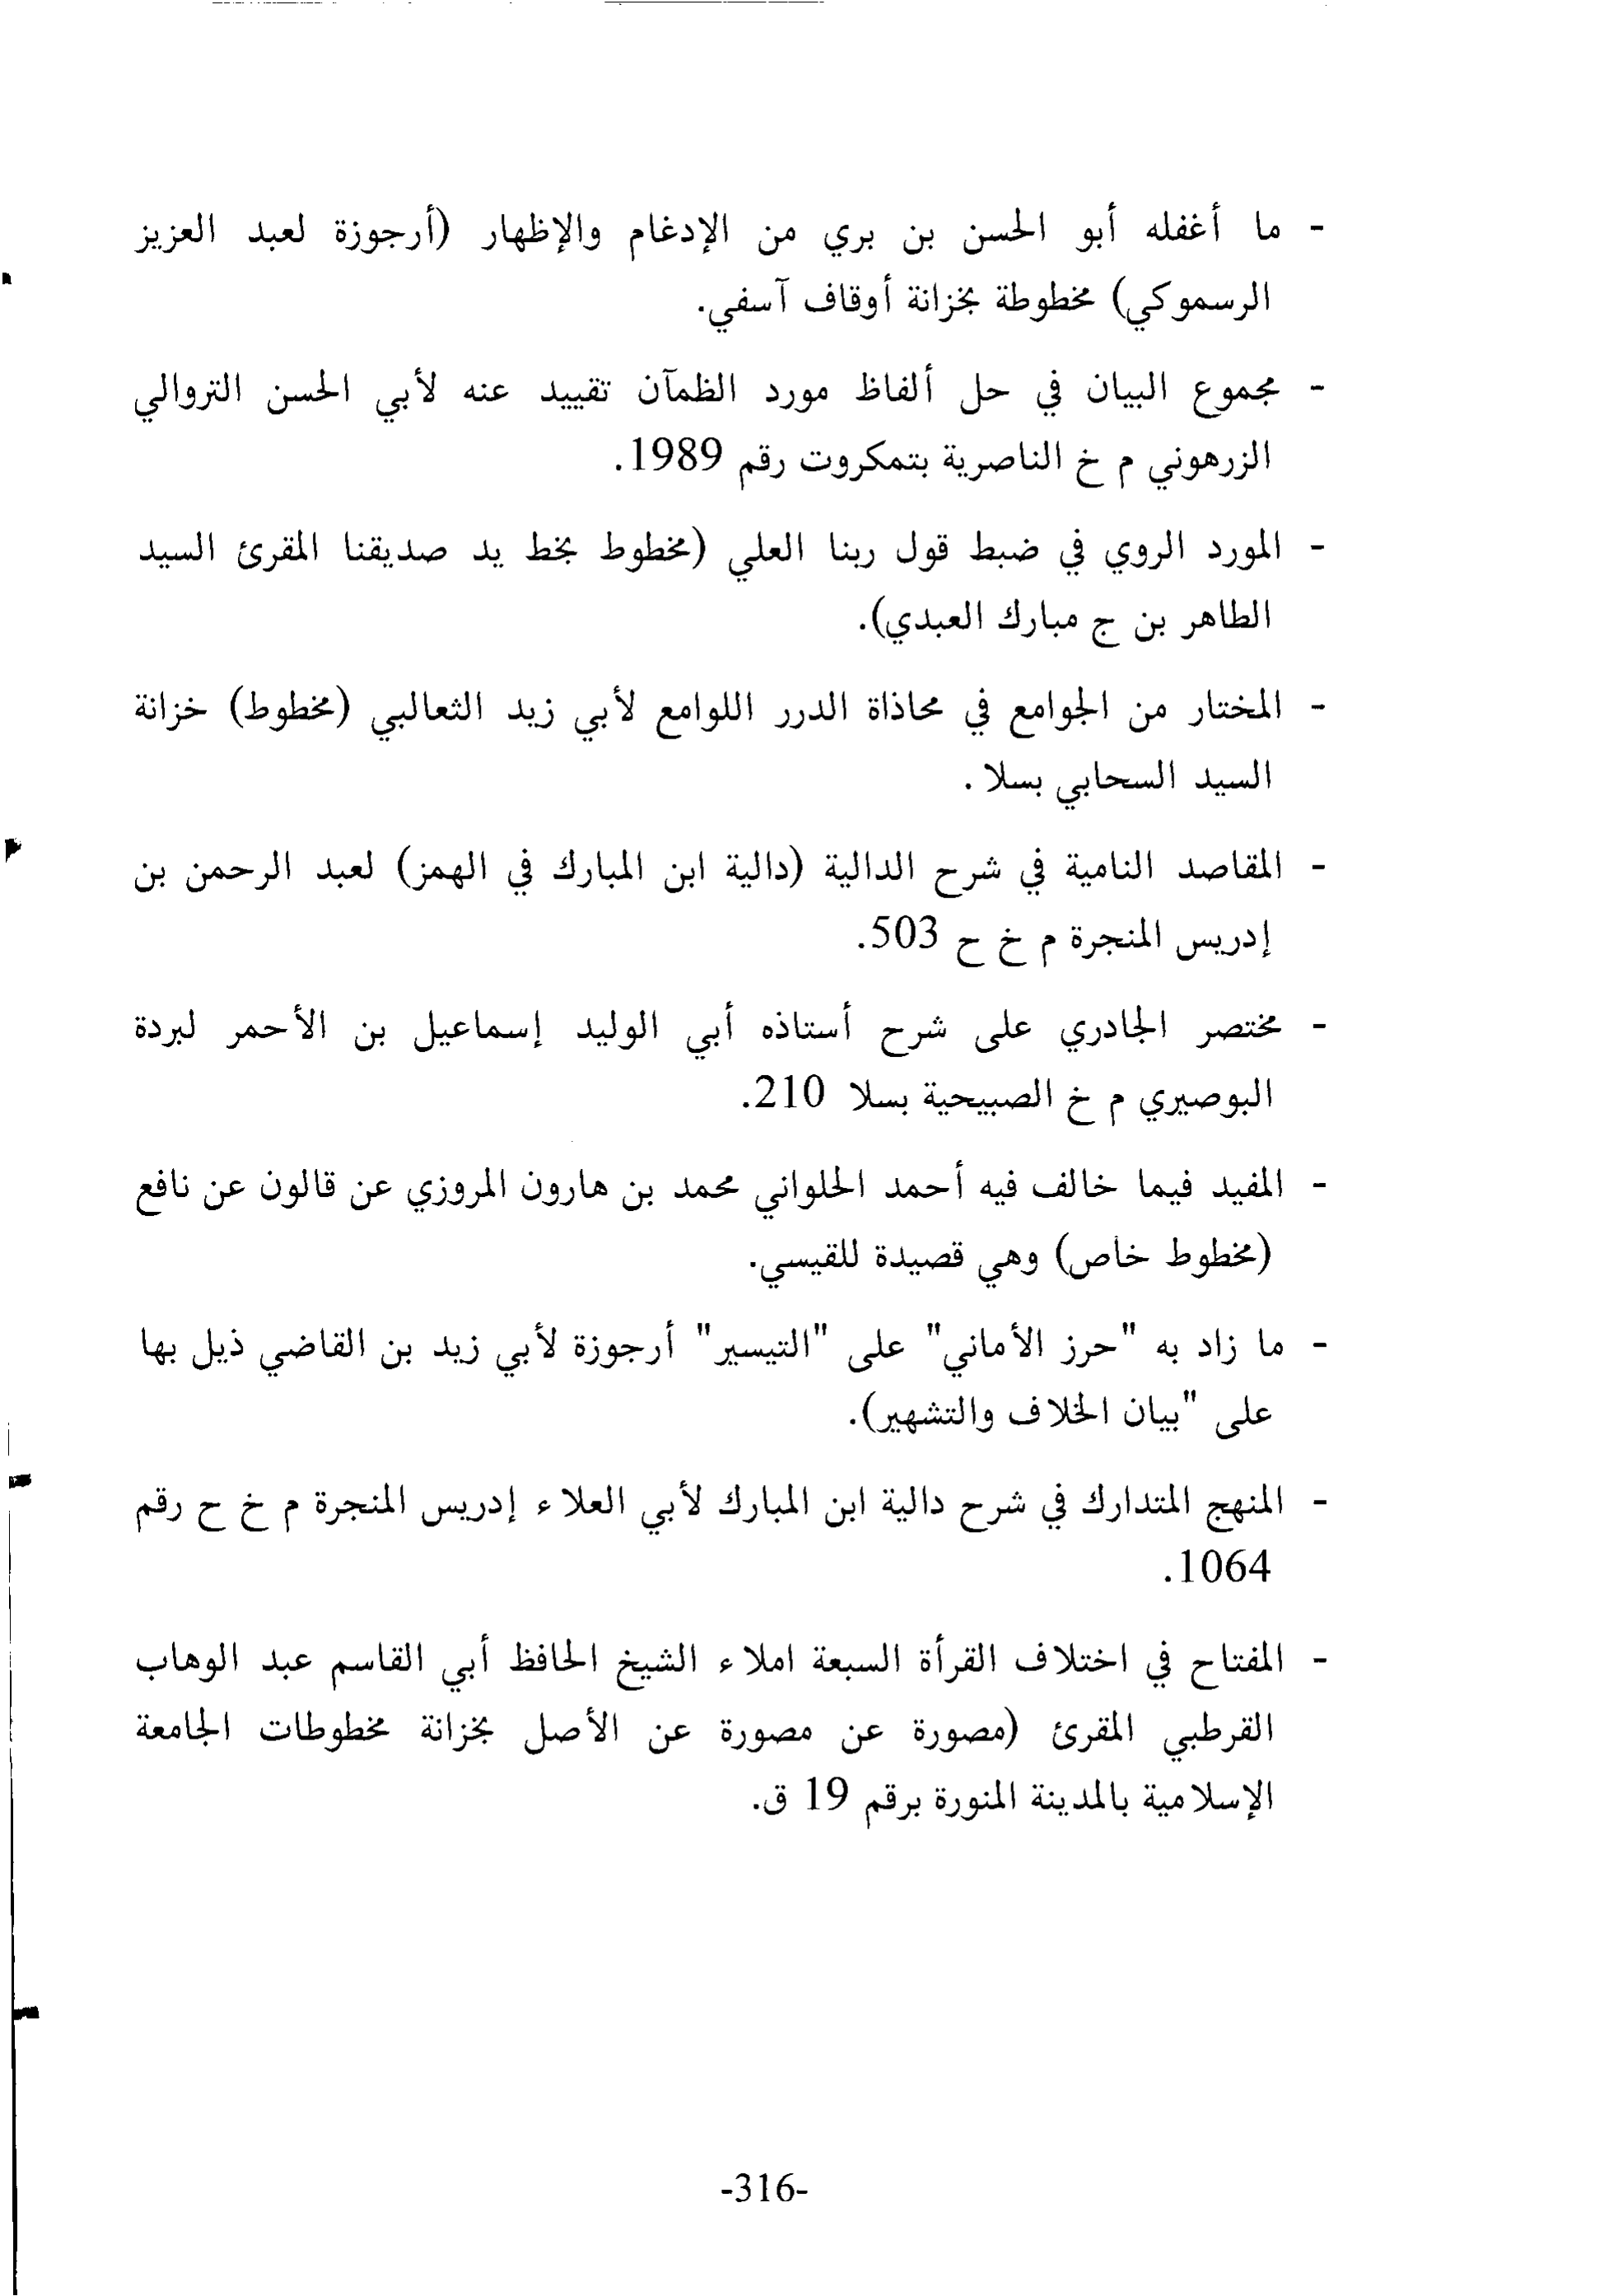 - ما أغفله أبو الحسن بن بري من الإدغام والإظهار (أرجوزة لعبد العزيز
الرسموكي) مخطوطة بخزانة أوقاف آسفي.
- مجموع البيان في حل ألفاظ مورد الظمآن تقييد عنه لأبي الحسن التروالي
الزرهوني م خ الناصرية بتمكروت رقم 1989.
- المورد الروي في ضبط قول ربنا العلي (مخطوط بخط يد صديقنا المقرئ السيد
الطاهر بن ج مبارك العبدي).
- المختار من الجوامع في محاذاة الدرر اللوامع لأبي زيد الثعالبي (مخطوط) خزانة
السيد السحابي بسلا .
- المقاصد النامية في شرح الدالية (دالية ابن المبارك في الهمز) لعبد الرحمن بن
إدريس المنجرة م خ ح 503.
- مختصر الجادري على شرح أستاذه أبي الوليد إسماعيل بن الأحمر لبردة
البوصيري م خ الصبيحية بسلا 210.
- المفيد فيما خالف فيه أحمد الحلواني محمد بن هارون المروزي عن قالون عن نافع
(مخطوط خاص) وهي قصيدة للقيسي.
- ما زاد به "حرز الأماني" على "التيسير" أرجوزة لأبي زيد بن القاضي ذيل بها
على "بيان الخلاف والتشهير).
- المنهج المتدارك في شرح دالية ابن المبارك لأبي العلاء إدريس المنجرة م خ ح رقم
1064.
- المفتاح في اختلاف القرأة السبعة املاء الشيخ الحافظ أبي القاسم عبد الوهاب
القرطبي المقرئ (مصورة عن مصورة عن الأصل بخزانة مخطوطات الجامعة
الإسلامية بالمدينة المنورة برقم 19 ق.
-316-